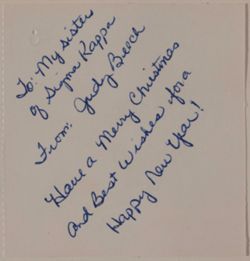 To: My sister
of Sigma Kappa
From: Judy Beech
Have a Merry Christmas
and Best Wishes for a
Happy New Year!